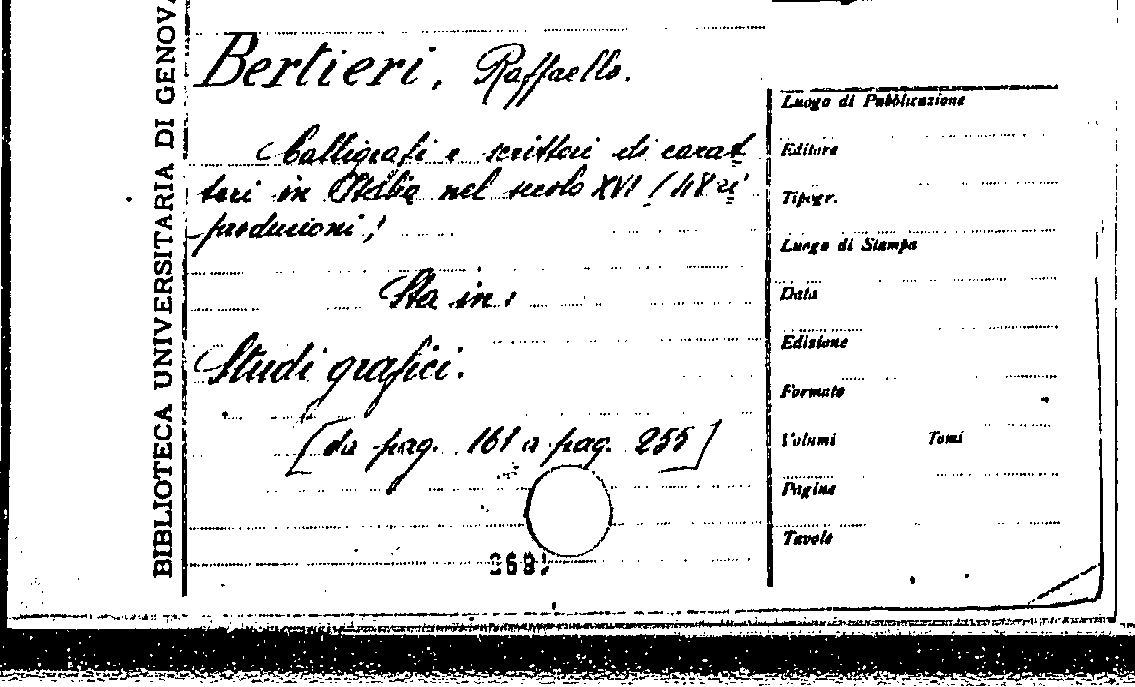 BIBLIOTECA UNIVERSITARIA DI GENOVA
Bertieri, Raffaello.
Calligrafi e scrittori di carat
teri in Italia nel secolo XVI (48 ri
produzioni)
Sta in:
Studi grafici.
[da pag. 161 a pag. 255]
Luogo di Pubblicazione
Editore
Tipogr.
Luogo di Stampa
Data
Edizione
Formato
Volumi Tomi
Pagine
Tavole